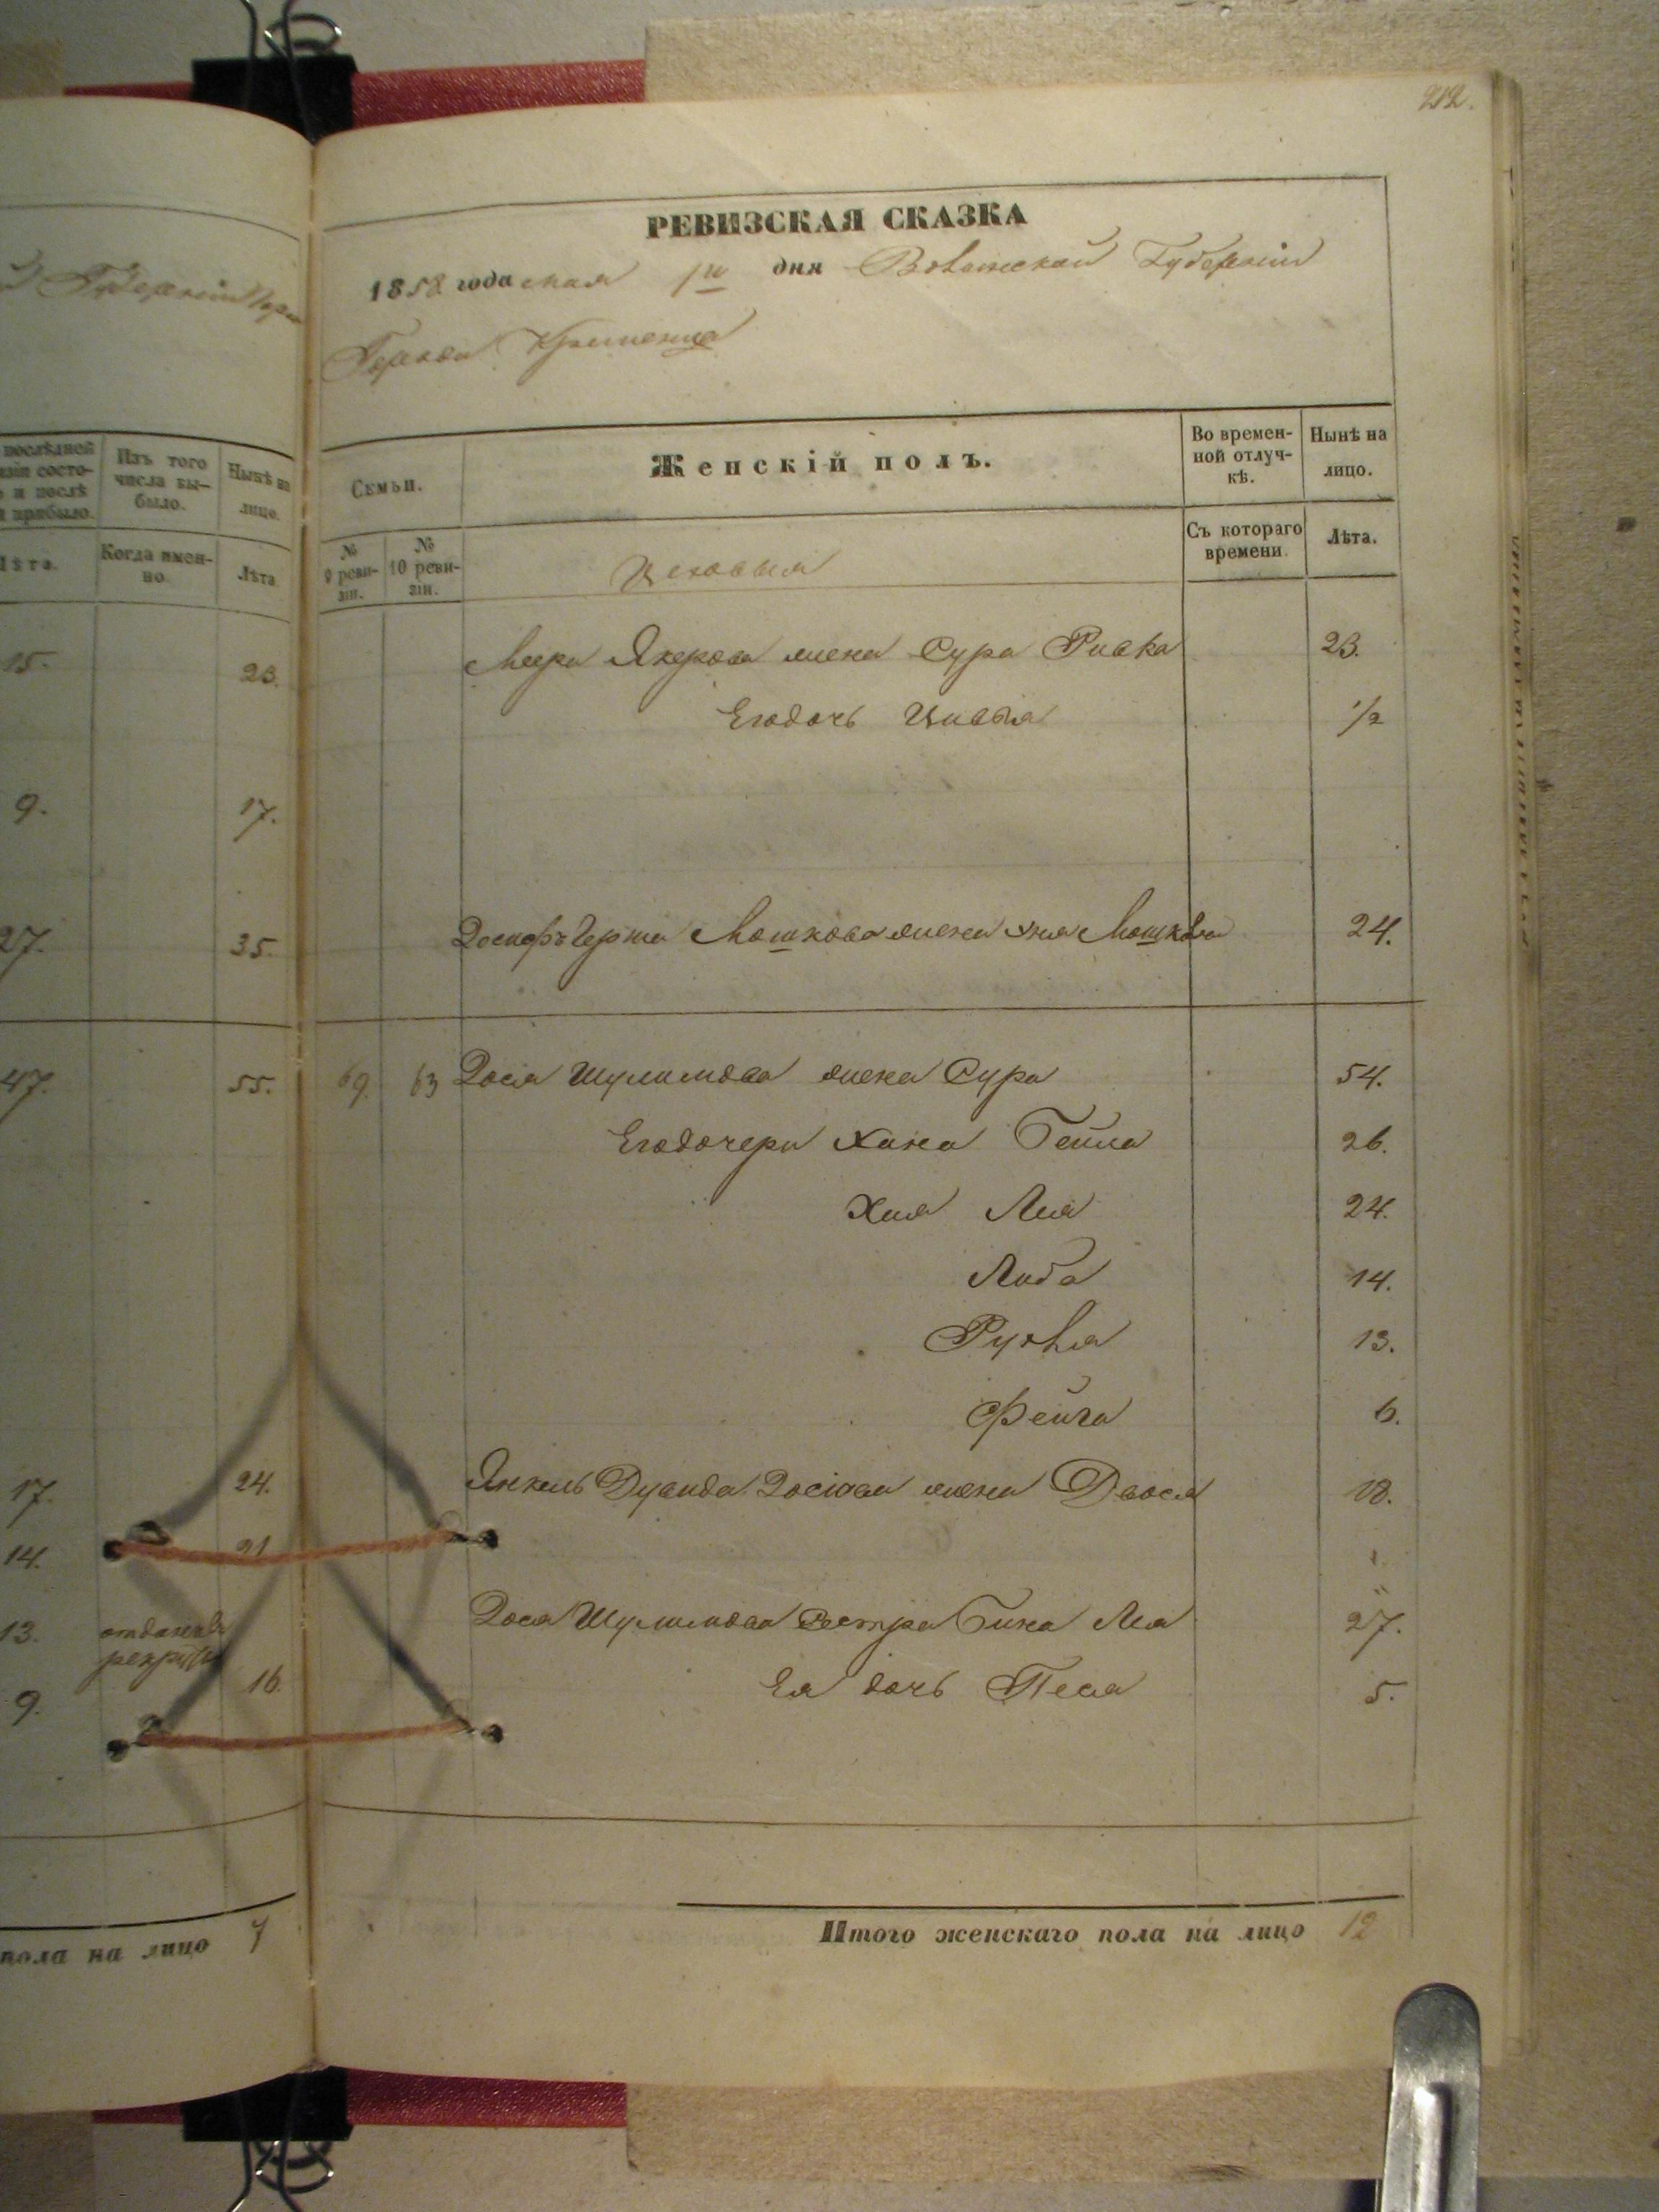 212.
РЕВИЗСКАЯ СКАЗКА
1858 года мая 1го дня Волынской Губернiи
Города Кременца
Губернiи
последней
Изъ того числа вы-было.
Нынѣ на лицо.
Лѣта.
Когда имен-но.
Лѣта
Семьи.
Женскій полъ.
Во времен-ной отлуч-кѣ.
Нынѣ на лицо.
№ 9 реви-зіи.
№ 10 реви-зіи.
Съ котораго времени.
Лѣта.
Цеховыя
15. 23.
Меера Якерова жена Сура Ривка 23.
Его дочь Цивья 1/2
9. 17.
27. 35.
Мошкова жена Мошкова 24.
47. 55.
69. 63 Шулимова жена Сура 54.
Его дочери Хана Бейла 26.
Хая Лея 24.
Либа 14.
Рухля 13.
Фейга 6.
17. 24.
Янкель Дувида жена Двося 18.
14. 21
13. отданъ въ рекруты
Шулимова сестра Бина Лея 27.
9. 16.
Ея дочь Песя 5.
пола на лицо 7
Итого женскаго пола на лицо 12